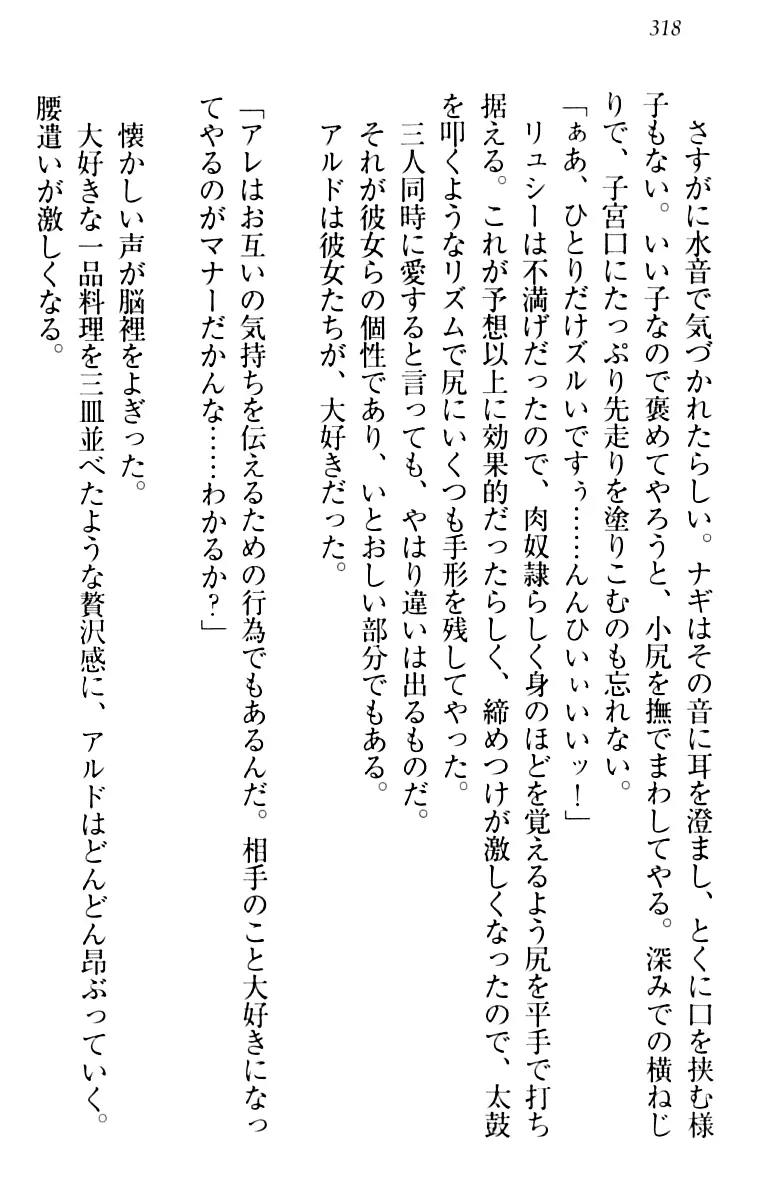 318
さすがに水音で気づかれたらしい。ナギはその音に耳を澄まし、とくに口を挟む様
子もない。いい子なので褒めてやろうと、小尻を撫でまわしてやる。深みでの横ねじ
りで、子宮口にたっぷり先走りを塗りこむのも忘れない。
「ぁあ、ひとりだけズルいですぅ……んんひいぃいいッ！」
リュシーは不満げだったので、肉奴隷らしく身のほどを覚えるよう尻を平手で打ち
据える。これが予想以上に効果的だったらしく、締めつけが激しくなったので、太鼓
を叩くようなリズムで尻にいくつも手形を残してやった。
三人同時に愛すると言っても、やはり違いは出るものだ。
それが彼女らの個性であり、いとおしい部分でもある。
アルドは彼女たちが、大好きだった。
「アレはお互いの気持ちを伝えるための行為でもあるんだ。相手のこと大好きになっ
てやるのがマナーだかんな……わかるか？」
懐かしい声が脳裡をよぎった。
大好きな一品料理を三皿並べたような贅沢感に、アルドはどんどん昂ぶっていく。
腰遣いが激しくなる。